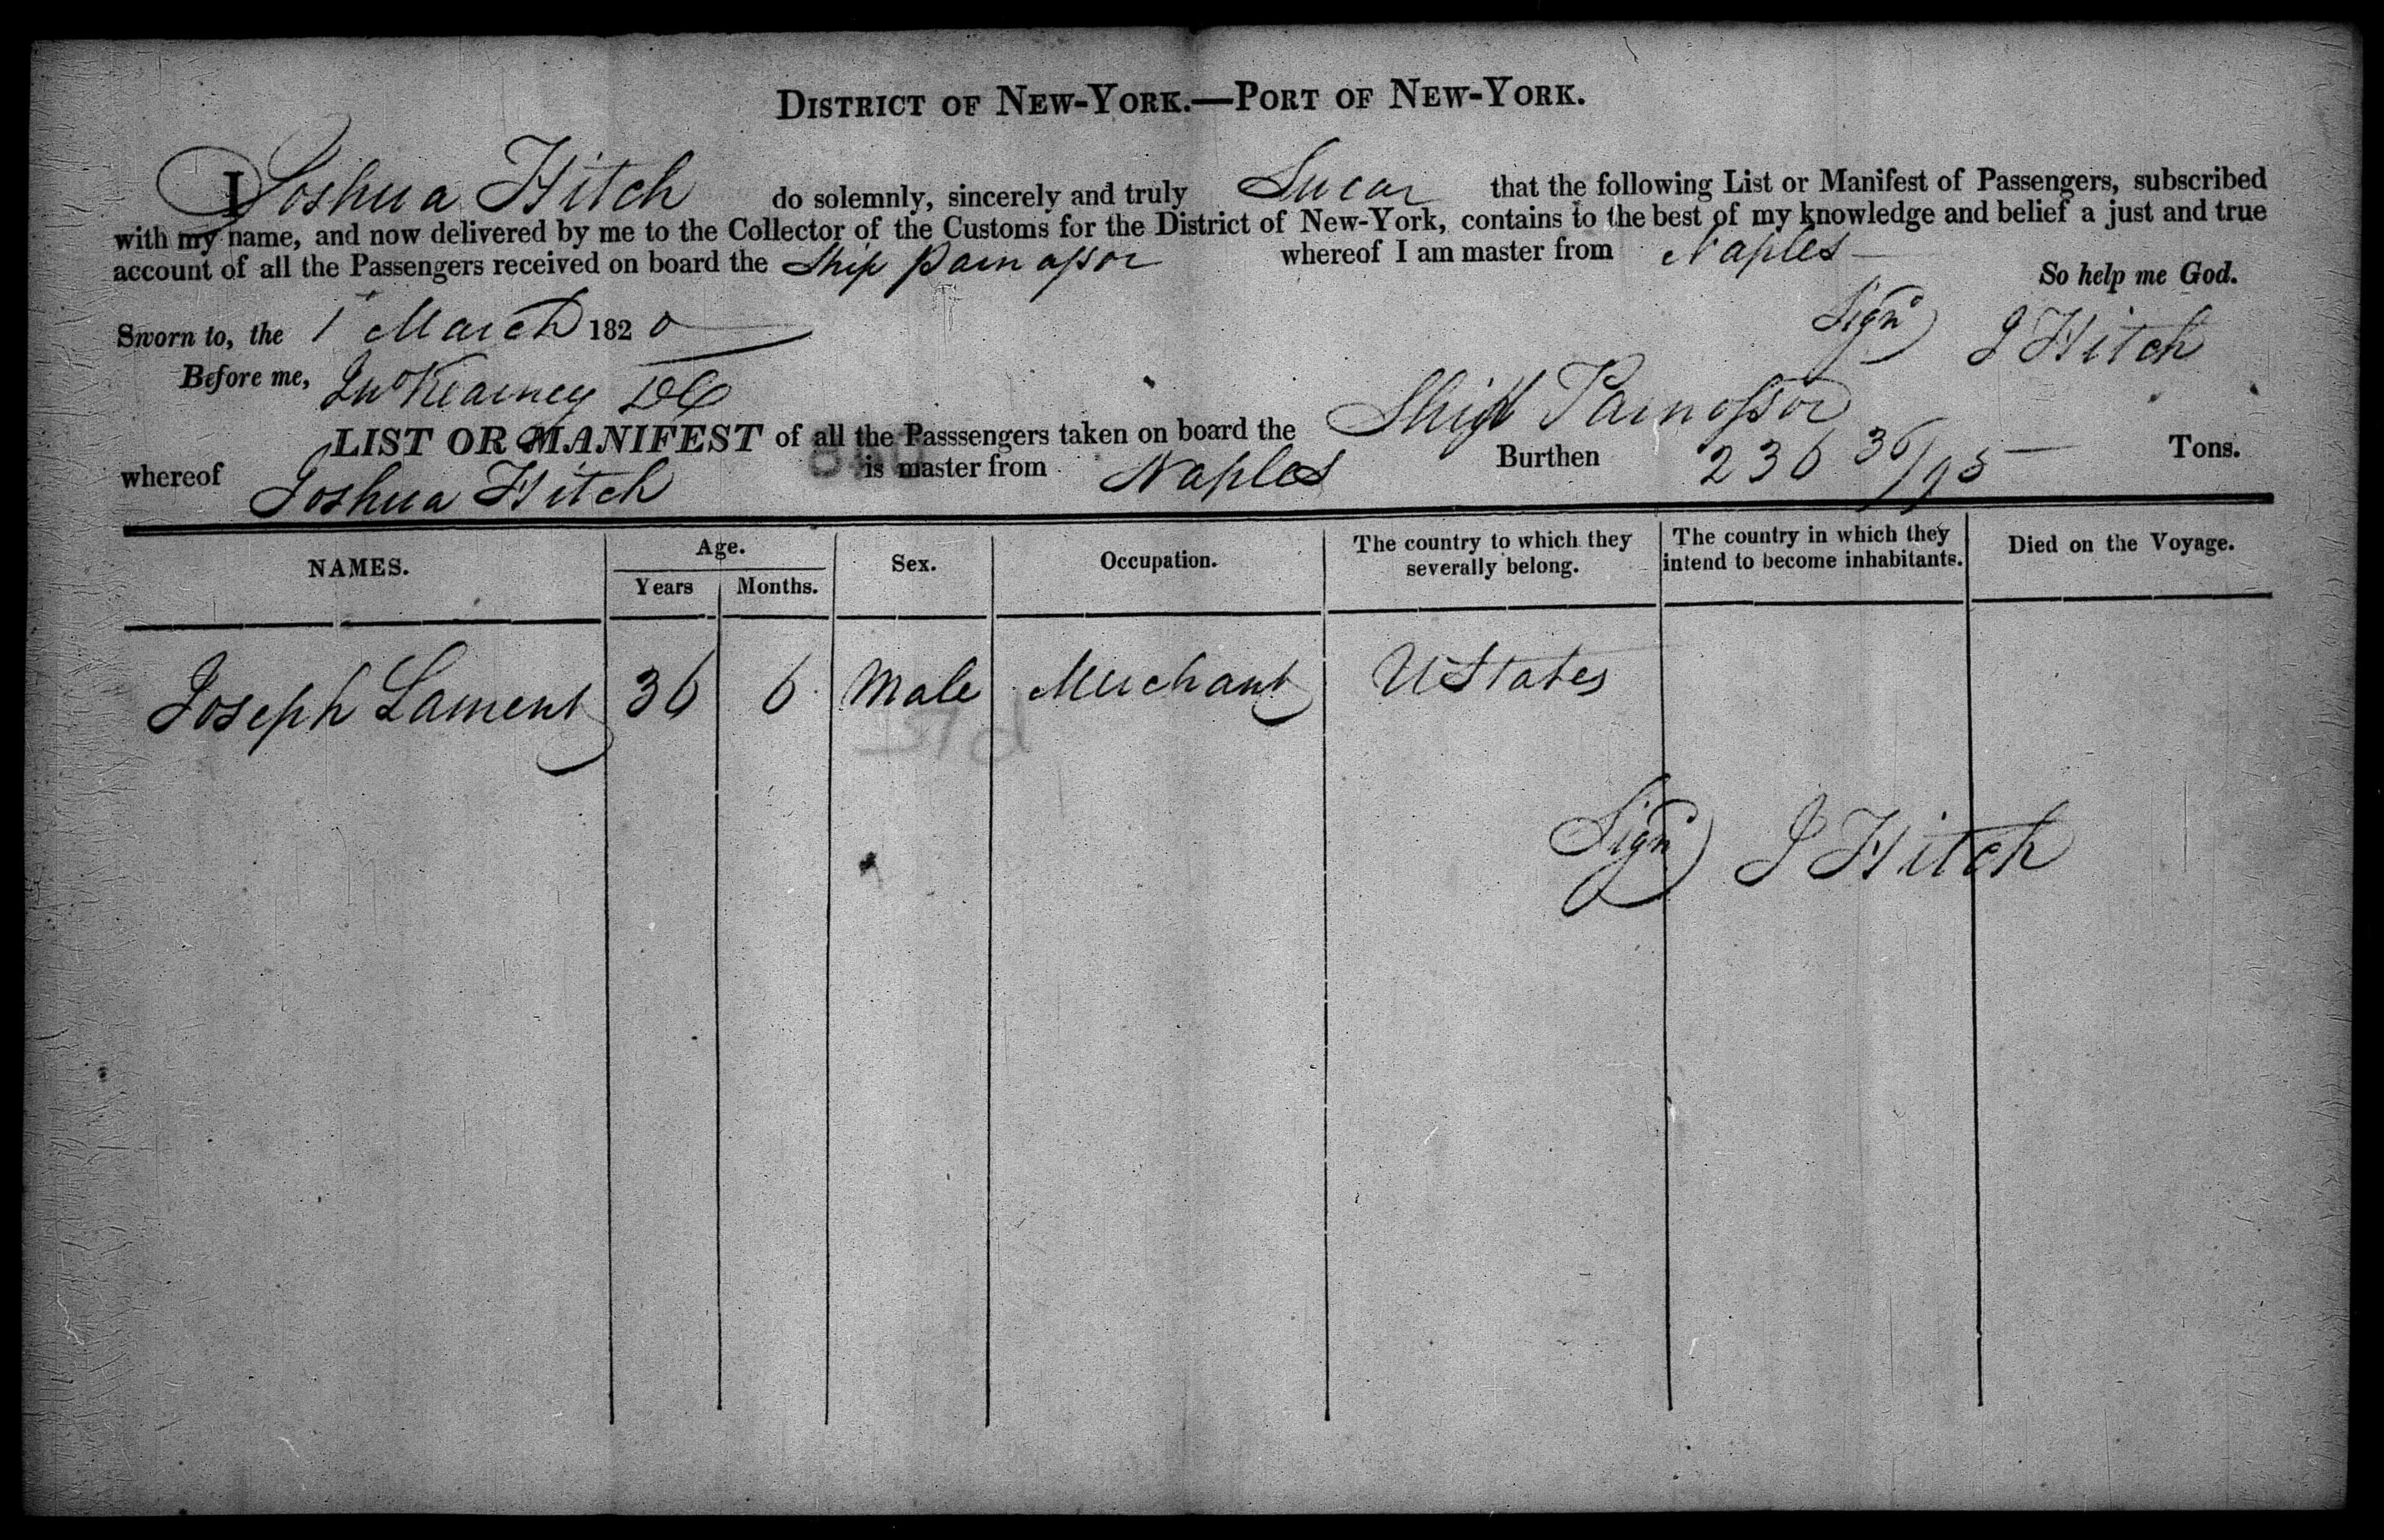 DISTRICT OF NEW-YORK.—PORT OF NEW-YORK.
I Joshua Hitch do solemnly, sincerely and truly Swear that the following List or Manifest of Passengers, subscribed
with my name, and now delivered by me to the Collector of the Customs for the District of New-York, contains to the best of my knowledge and belief a just and true
account of all the Passengers received on board the Ship Parnassor whereof I am master from Naples
So help me God.
Sworn to, the 1 March 1820
Signd J Hitch
Before me, Jno Kearney DC
LIST OR MANIFEST of all the Passsengers taken on board the Ship Parnossor
whereof Joshua Hitch is master from Naples Burthen 236 36/95 Tons.
NAMES. Age. Sex. Occupation. The country to which they severally belong. The country in which they intend to become inhabitants. Died on the Voyage.
Years Months.
Joseph Lament 36 6 Male Merchant UStates
Signd J Hitch